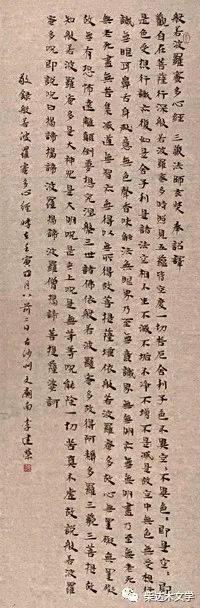 般若波羅蜜多心經 三藏法師玄奘奉詔譯
觀自在菩薩行深般若波羅蜜多時照見五蘊皆空度一切苦厄舍利子色不異空、即是空、即
是色受想行識亦復如是舍利子是諸法空相不生不滅不垢不淨不增不減是故空中無色無受想行
識無眼耳鼻舌身意無色聲香味觸法無眼界乃至無意識界無無明亦無無明盡乃至無老死亦
無老死盡無苦集滅道無智亦無得以無所得故菩提薩埵依般若波羅蜜多故心無罣礙無罣礙
故無有恐怖遠離顛倒夢想究竟涅槃三世諸佛依般若波羅蜜多故得阿耨多羅三藐三菩提故
知般若波羅蜜多是大神咒是大明咒是無上咒是無等等咒能除一切苦真實不虛故說般若波羅
蜜多咒即說咒曰揭諦揭諦波羅揭諦波羅僧揭諦菩提薩婆訶
敬錄般若波羅蜜多心經時在壬寅四月八前二日古沙州文廟南李建榮
柴达木文学